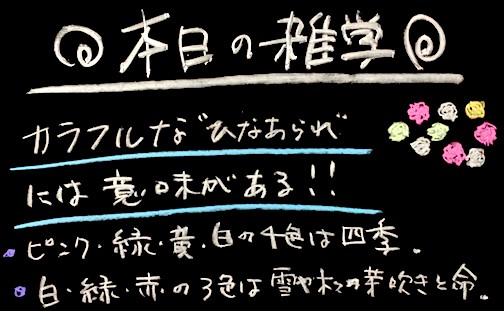 本日の雑学
カラフルな"ひなあられ"
には意味がある!!
・ピンク・緑・黄・白の4色は四季。
・白・緑・赤の3色は雪や木々の芽吹きと命。